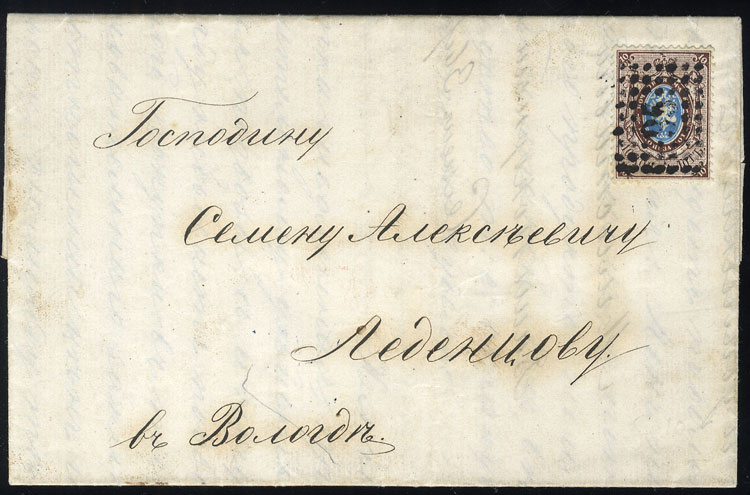 Господину
Семену Алексѣевичу
Леденцову.
въ Вологдѣ.